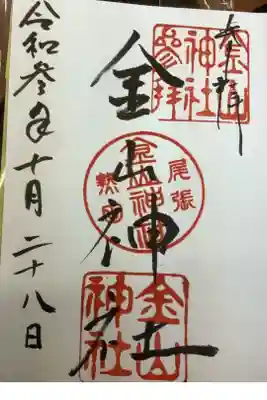 奉拝
金山神社参拝
金山神社
尾張
熱田
金山神社
金山神社
令和参年十月二十八日